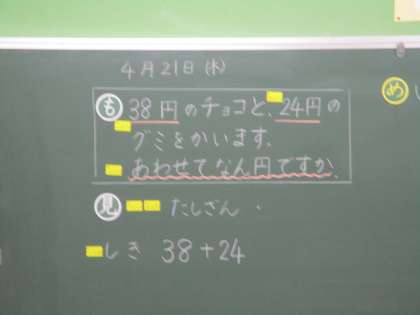 4月21日(木)
め
も 38円のチョコと、24円の
グミをかいます。
あわせてなん円ですか。
見 たしざん
しき 38+24